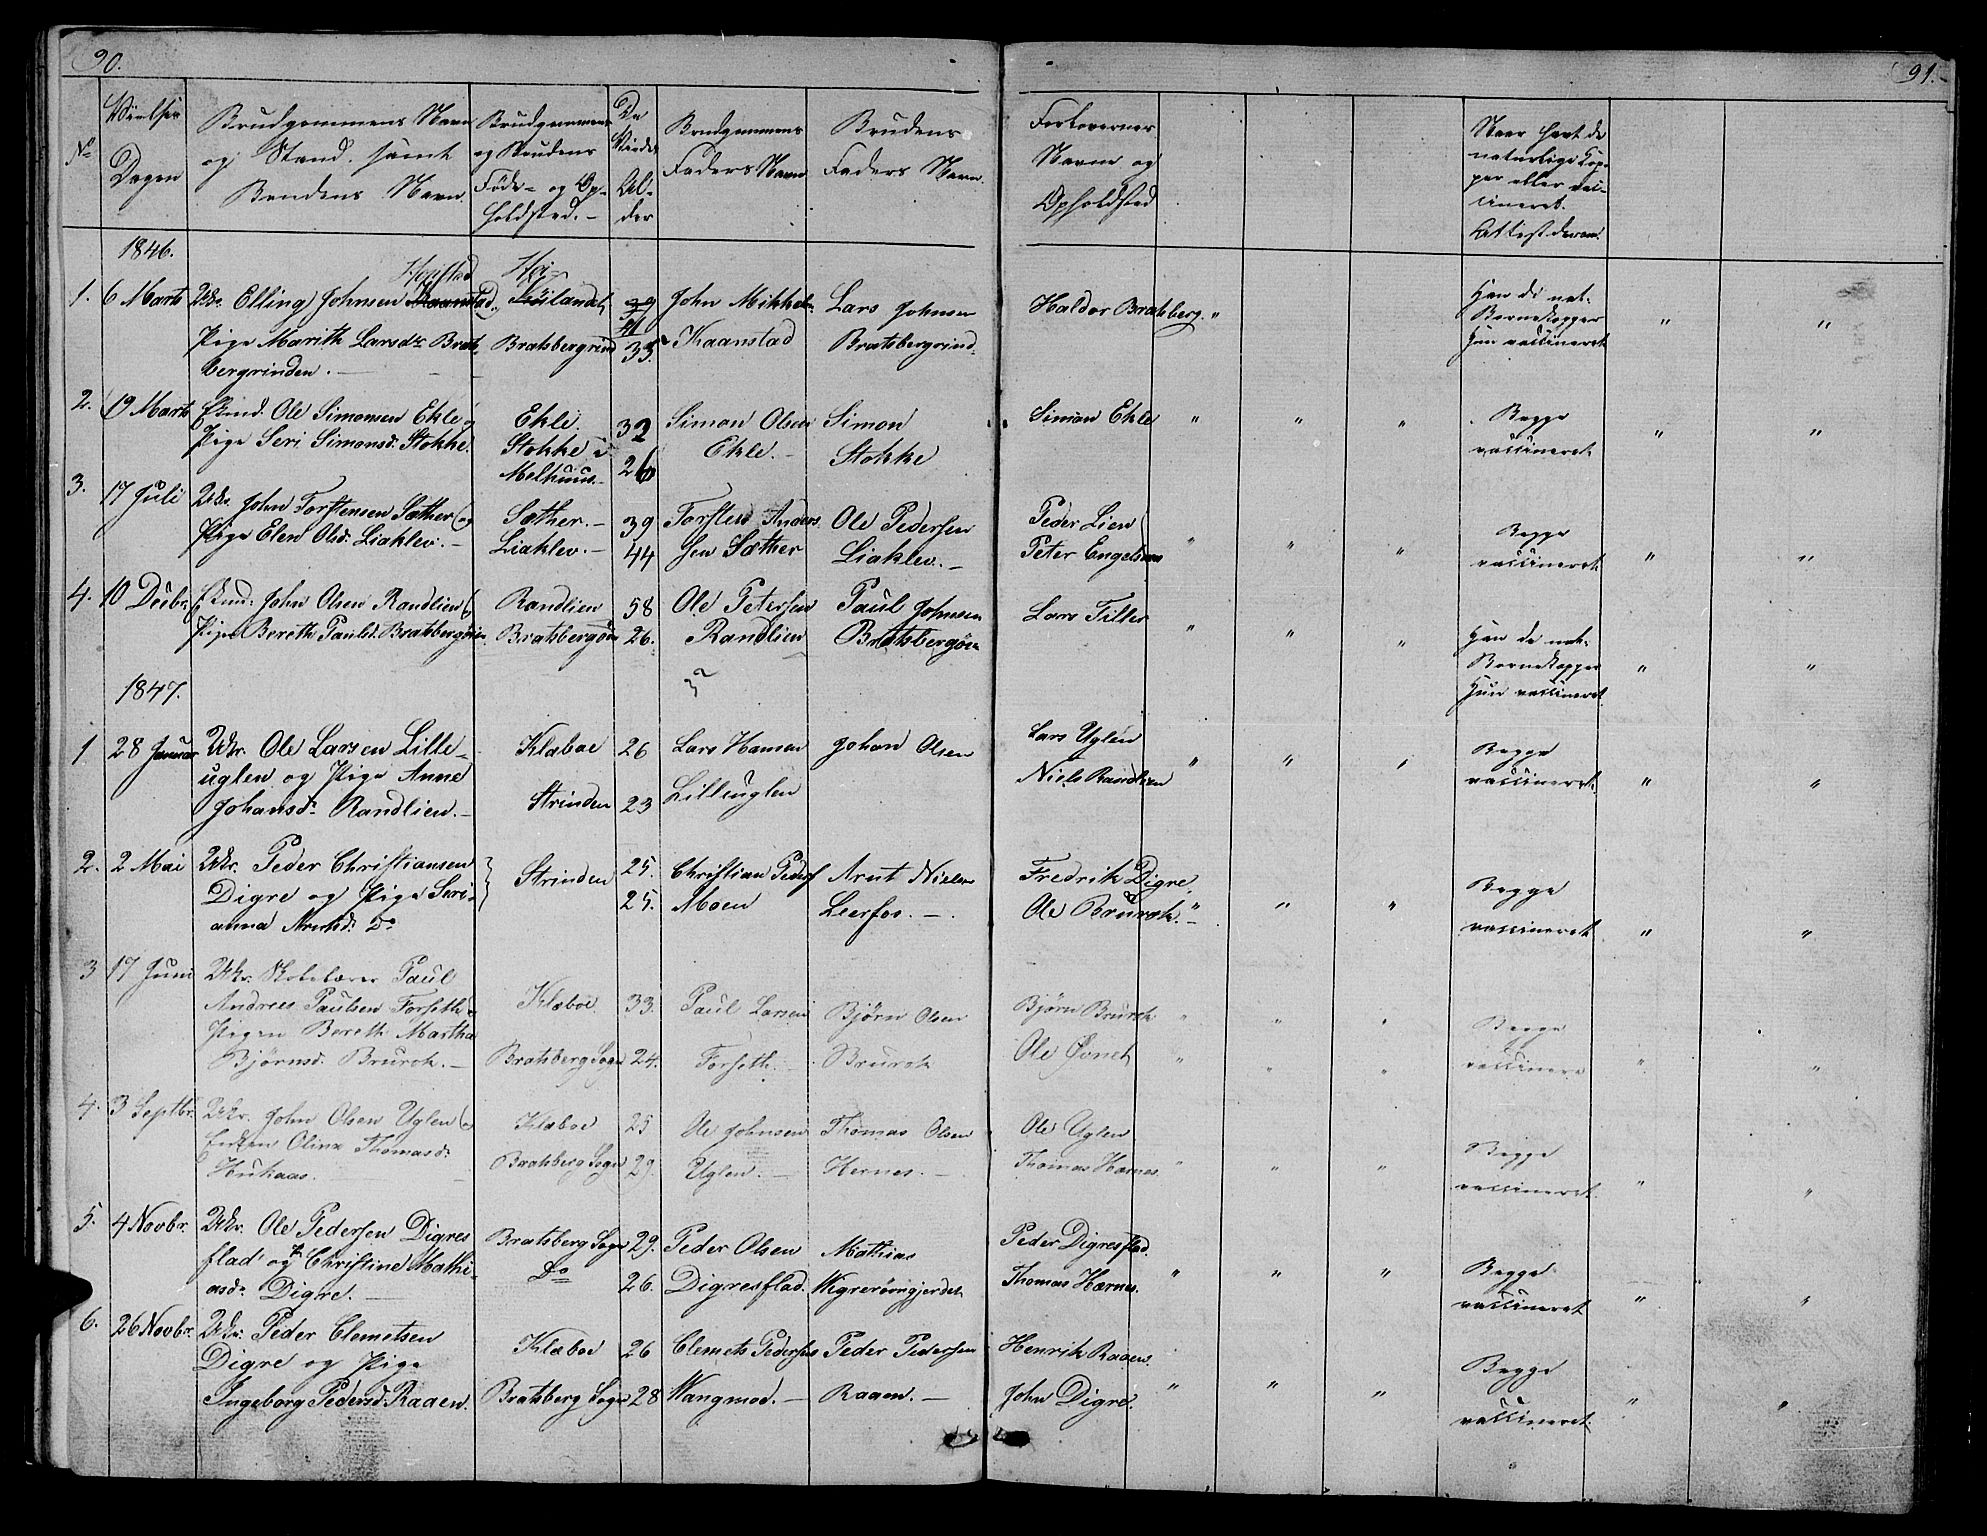 90.
91.
No
Vielses
Dagen
Brudgommens Navn
og Stand, samt
Brudens Navn.
Brudgommens
og Brudens
Føde- og Op-
holdsted.-
De
Viedes
Al-
der
Brudgommens
Faders Navn
Brudens
Faders Navn.
Forloverens
Navne og
Opholdsted
Naar havt de
naturlige Kop-
per eller vac-
cineret.
Attest derom.
1846.
1. 6 Marts Ukr. Elling Johnsen
Pige Marith Larsdr. Brats-
bergrinden.-
Bratsbergrind
41
33.
John Mikkels
Kaanstad
Lars Johnsen
Bratsbergrind
Haldor Bratsberg. "
Han de nat-
Børnekopper
Hun vaccineret
" "
2. 19 Marts Enkmd. Ole Simonsen Ekle og
Pige Seri Simonsd. Stokke.
Ekle.
Stokke i
Melhuus.-
32
26
Simon Olsen
Ekle.-
Simon
Stokke
Simon Ekle " " "
Begge
vaccineret
" "
3. 17 Juli Ukr. John Torstensen Sæther og
Pige Elen Olsd. Liaklev.-
Sæther.-
Liaklev.-
39
44
Torsten Anders
sen Sæther
Ole Pedersen
Liaklev.-
Peder Lien
Peter Engelsen " " "
Begge
vaccineret
" "
4. 10 Decbr. Enkmd. John Olsen Randlien og
Pige Bereth Paulsd. Bratsbergøien.
Randlien
Bratsbergøien
58
26.
Ole Petersen
Randlien
Paul Johnsen
Bratsbergøien
Lars Tiller
" " "
Han de nat-
Børnekopper
Hun vaccineret
" "
1847.
1 28 Januar Ukr. Ole Larsen Lille-
uglen og Pige Anne
Johansdr. Randlien.-
Klæboe
Strinden
26
23
Lars Hansen
Lilleuglen
Johan Olsen
Lars Uglen
Niels Randlien
" " "
Begge
vaccineret
" "
2. 2 Mai Ukr. Peder Christiansen
Digre og Pige Seri-
anna Arntsd. Do
Strinden
25.
25.
Christian Peders
Moen
Arnt Nielsen
Leerfos.-
Fredrik Digre
Ole Brurok. " " "
Begge
vaccineret
" "
3 17 Juni Ukr. Skolelærer Paul
Andreas Paulsen Forseth og
Pigen Bereth Martha
Bjørnsd. Brurok.-
Klæboe.
Bratsberg Sogn
33.
24.
Paul Larsen
Forseth.-
Bjørn Olsen
Brurok
Bjørn Brurok " " "
Ole " " "
Begge
vaccinere
" "
4. 3 Septbr. Ukr. John Olsen Uglen og
Enken Olina Thomasd.
Hukaas.-
Klæboe
Bratsberg Sogn
25
29.
Ole Johnsen
Uglen.-
Thomas Olsen
Hernes.-
Ole Uglen
Thomas Hærnes. " " "
Begge
vaccineret
" "
5. 4 Novbr. Ukr. Ole Pedersen Digres
flad og P. Christine Mathi-
asdr. Digre.-
Bratsberg Sogn
Do
29.
26.
Peder Olsen
Digresflad.
Mathias
Peder Digresflad.
Thomas Hærnes. " " "
Begge
vaccineret
" "
6. 26 Novbr. Ukr. Peder Clemetsen
Digre og Pige
Ingeborg Pedersd. Raaen.
Klæboe
Bratsberg Sogn
26
28
Clemets Pedersen
Wangmod.-
Peder Pedersen
Raaen.-
Henrik Raaen.
John Digre. " " "
Begge
vaccineret
" "